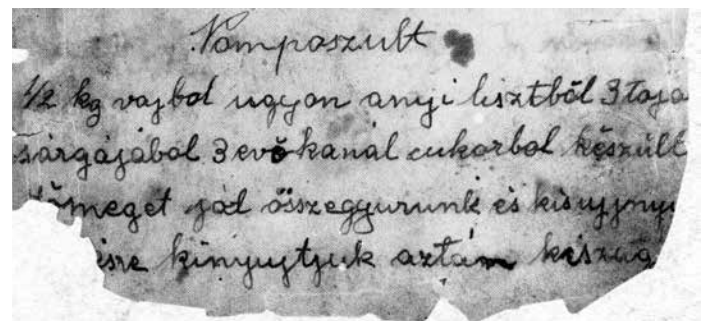 Vompaszult
1/2 kg vajbol ugyan anyi lisztből 3 toja
sárgájábol 3 evőkanál cukorbol készült
tömeget jól összegyurunk és kisujjnyi
kinyujtjuk aztám